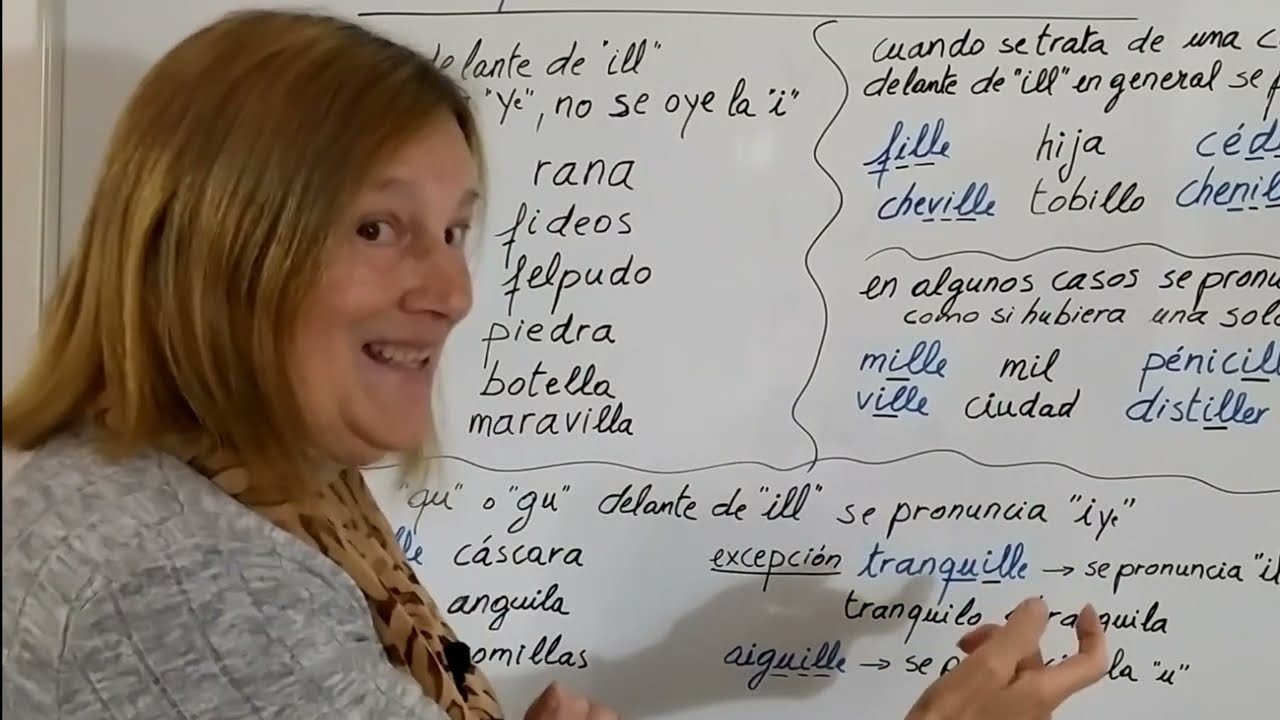 delante de "ill"
"Ye", no se oye la "i"
rana
fideos
felpudo
piedra
botella
maravilla
cuando se trata de una
delante de "ill" en general se
fille hija
cheville tobillo
en algunos casos se
como si hubiera una
mille mil
ville ciudad distiller
"qu" o "gu" delante de "ill" se pronuncia "iye"
cáscara
anguila
excepción tranquille → se pronuncia
tranquilo
aiguille → se la "u"